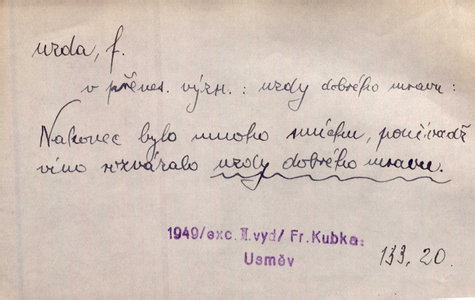 uzda, f.
v přenes. význ. : uzdy dobrého mravu :
Nakonec bylo mnoho smíchu, poněvadž
víno rozvázalo uzdy dobrého mravu.
1949/exc. II.vyd/ Fr.Kubka:
Usměv
133, 20.